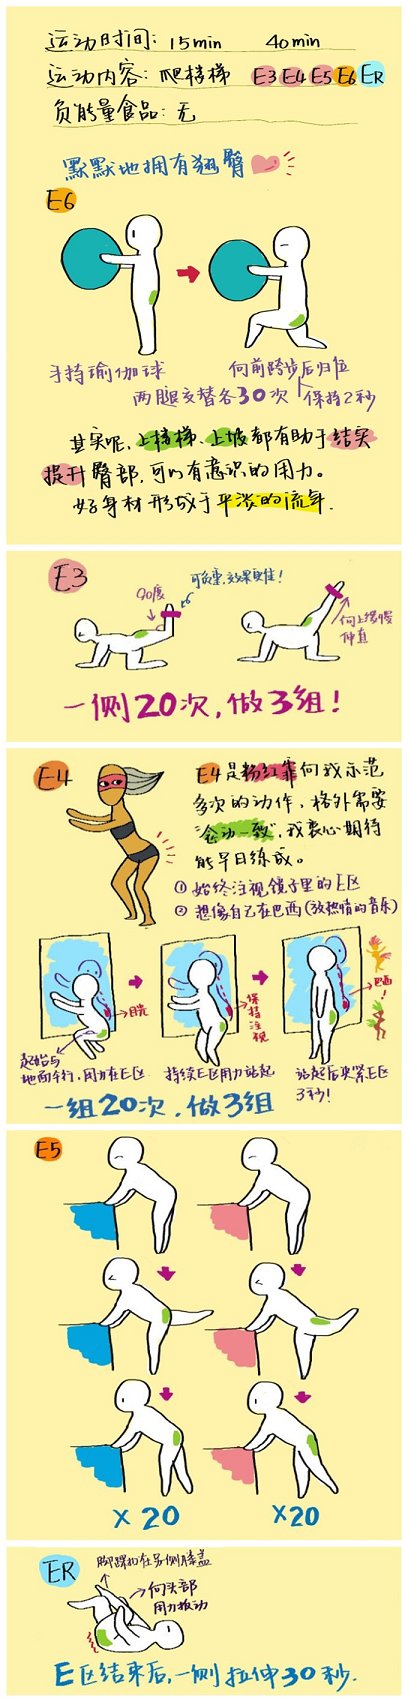 运动时间: 15min 40min
运动内容: 爬楼梯 E3 E4 E5 E6 ER
负能量食品: 无
默默地拥有翘臀
E6
手持瑜伽球
向前跨步后归位
两腿交替各30次
保持2秒
其实呢,上楼梯、上坡都有助于结实
提升臀部,可以有意识的用力。
好身材形成于平淡的流年.
E3
90度
可负重,效果更佳!
向上缓慢
伸直
一侧20次,做3组!
E4
E4是粉红靠向我示范
多次的动作,格外需要
"念动一致",我衷心期待
能早日练成。
① 始终注视镜子里的E区
② 想像自己在巴西(放热情的音乐)
目光
保持注视
巴西!
起始与
地面平行,用力在E区
持续E区用力站起
站起后夹紧E区
3秒!
一组20次,做3组
E5
X 20
X20
ER
脚踝扣在另侧膝盖
向头部
用力扳动
E区结束后,一侧拉伸30秒.